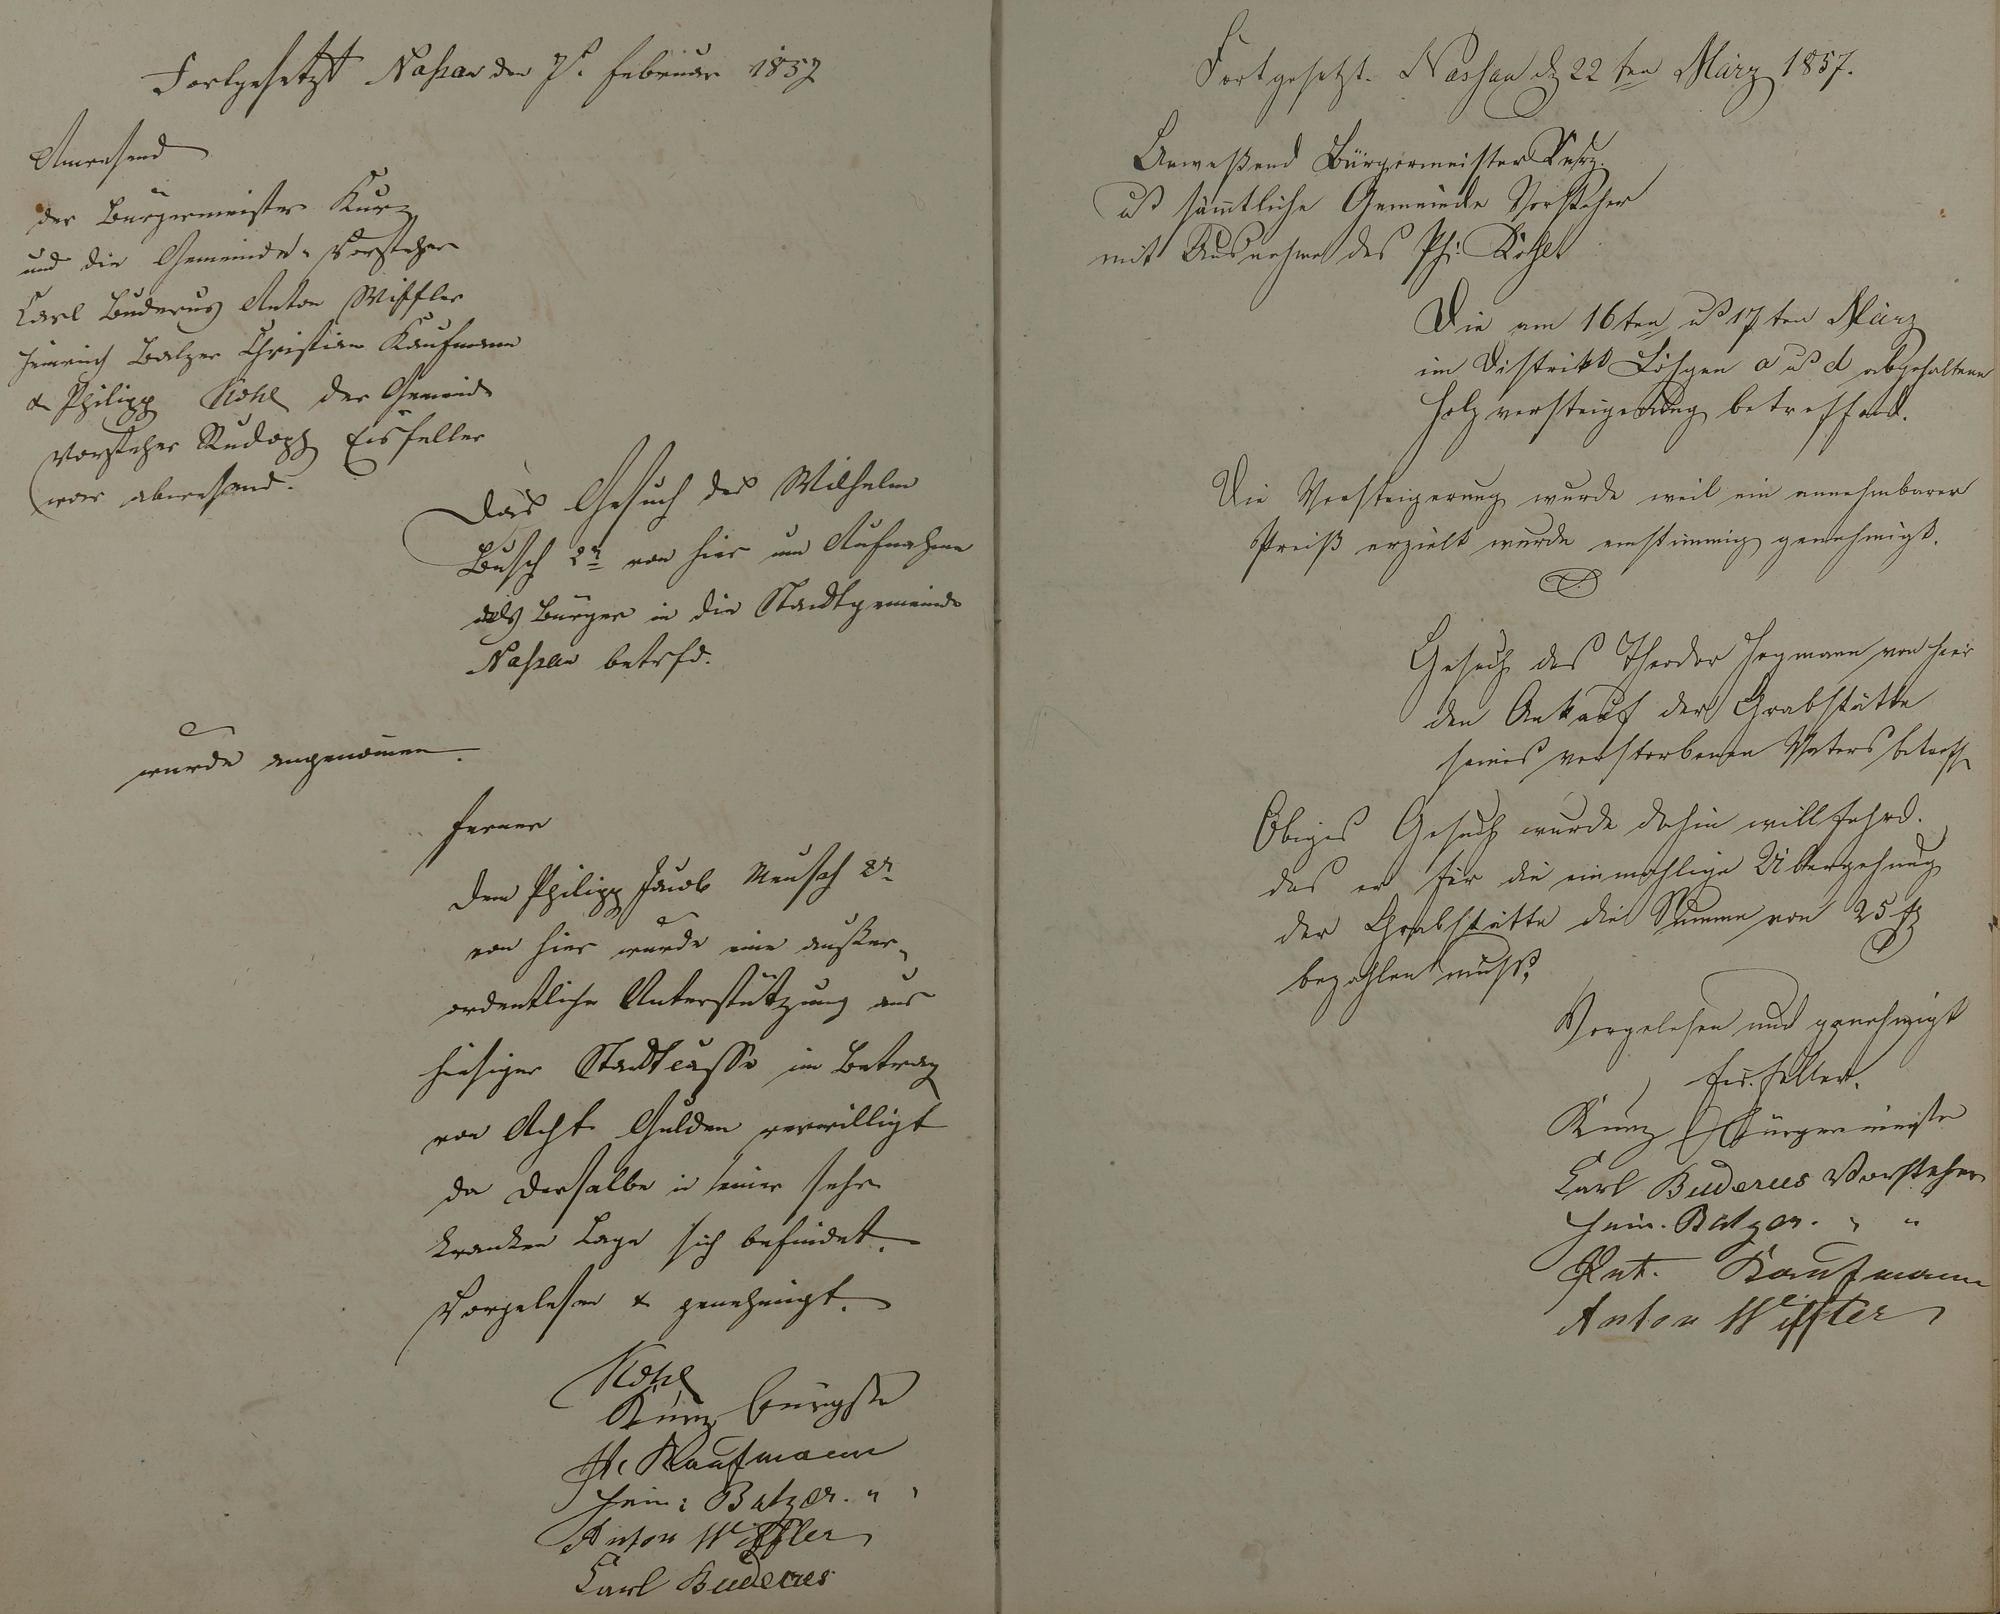 Fortgesetzt Nassau den 7t. Februar 1857
Anwesend
der Bürgermeister Kurz
und die Gemeinde-Vorsteher
Carl Buderus Anton Wiffler
Heinrich Balzer Christian Kaufmann
& Philipp Kohl der Gemeinde
Vorsteher Rudoph Eisfeller
war abwesend.
Das Gesuch des Wilhelm
Busch 2r von hier um Aufnahme
als Bürger in die Stadtgemeinde
Nassau betrfd.
wurde angenommen.
Ferner
Dem Philipp Jacob Meusch 2r
von hier wurde eine außer-
ordentliche Unterstützung aus
hiesiger Stadtcasse im Betrag
von Acht Gulden verwilligt
da derselbe in seiner sehr
kranken Lage sich befindet.
Vorgelesen & genehmigt.
Kohl
Kurz Bürgstr
Kaufmann
Hein: Balzer. " "
Anton Wiffler
Carl Buderus
Fortgesetzt. Nassau d 22ten März 1857.
Anweßend Bürgermeister Kurz.
u sämtliche Gemeinde Vorsteher
mit Ausnahme des Ph: Kohl
Die am 16ten u 17ten März
im Distrikt Löhgen a u d abgehaltene
Holzversteigerung betreffend.
Die Versteigerung wurde weil ein annehmbarer
Preiß erzielt wurde einstimmig genehmigt.
Gesuch des Theodor Hegmann von hier
den Ankauf der Grabstätte
seines verstorbenen Vaters betreff
Obiges Gesuch wurde dahin willfahrd.
das er für die einmahlige Übergehung
der Grabstätte die Summe von 25 fl
bezahlen muß.
Vorgelesen und genehmigt
Eisfeller.
Kurz Bürgermeister
Carl Buderus Vorsteher
Hein. Balzer. " "
Kaufmann
Anton Wiffler